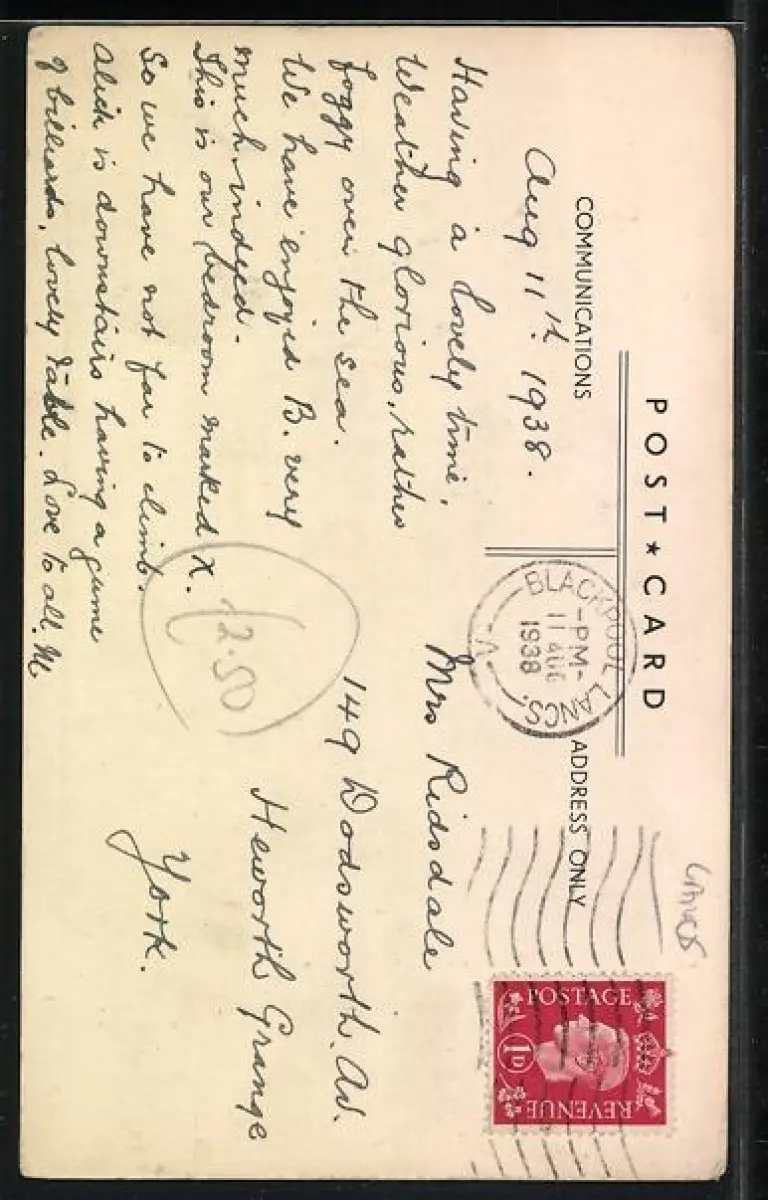 POST ★ CARD
COMMUNICATIONS
ADDRESS ONLY
Lancs
Aug 11th. 1938.
Having a lovely time,
Weather glorious, rather
foggy over the sea.
We have enjoyed B. very
much indeed.
This is our bedroom marked X.
So we have not far to climb.
is downstairs having a game
of billiards, lovely table. Love to all. M
BLACKPOOL LANCS.
-PM-
11 AUG
1938
A
POSTAGE
1D
REVENUE
Mrs Ridsdale
149 Dodsworth. Av.
Heworth Grange
York.
2.50